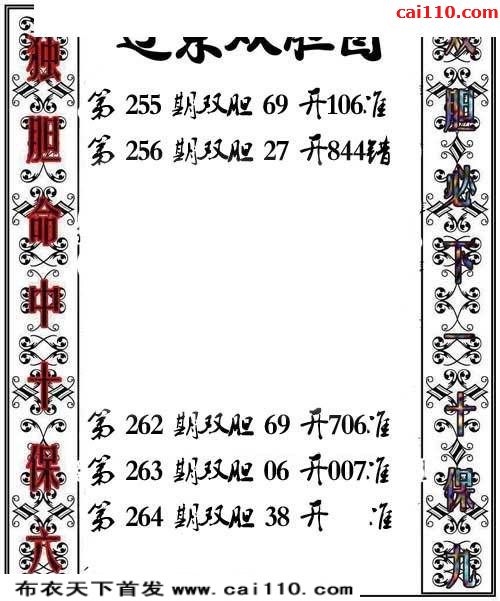 cai110.com
双胆图
独胆命中十保六
第 255 期双胆 69 开106准
第 256 期双胆 27 开844错
第 262 期双胆 69 开706准
第 263 期双胆 06 开007准
第 264 期双胆 38 开 准
双胆必下一十保九
布衣天下首发 www.cai110.com